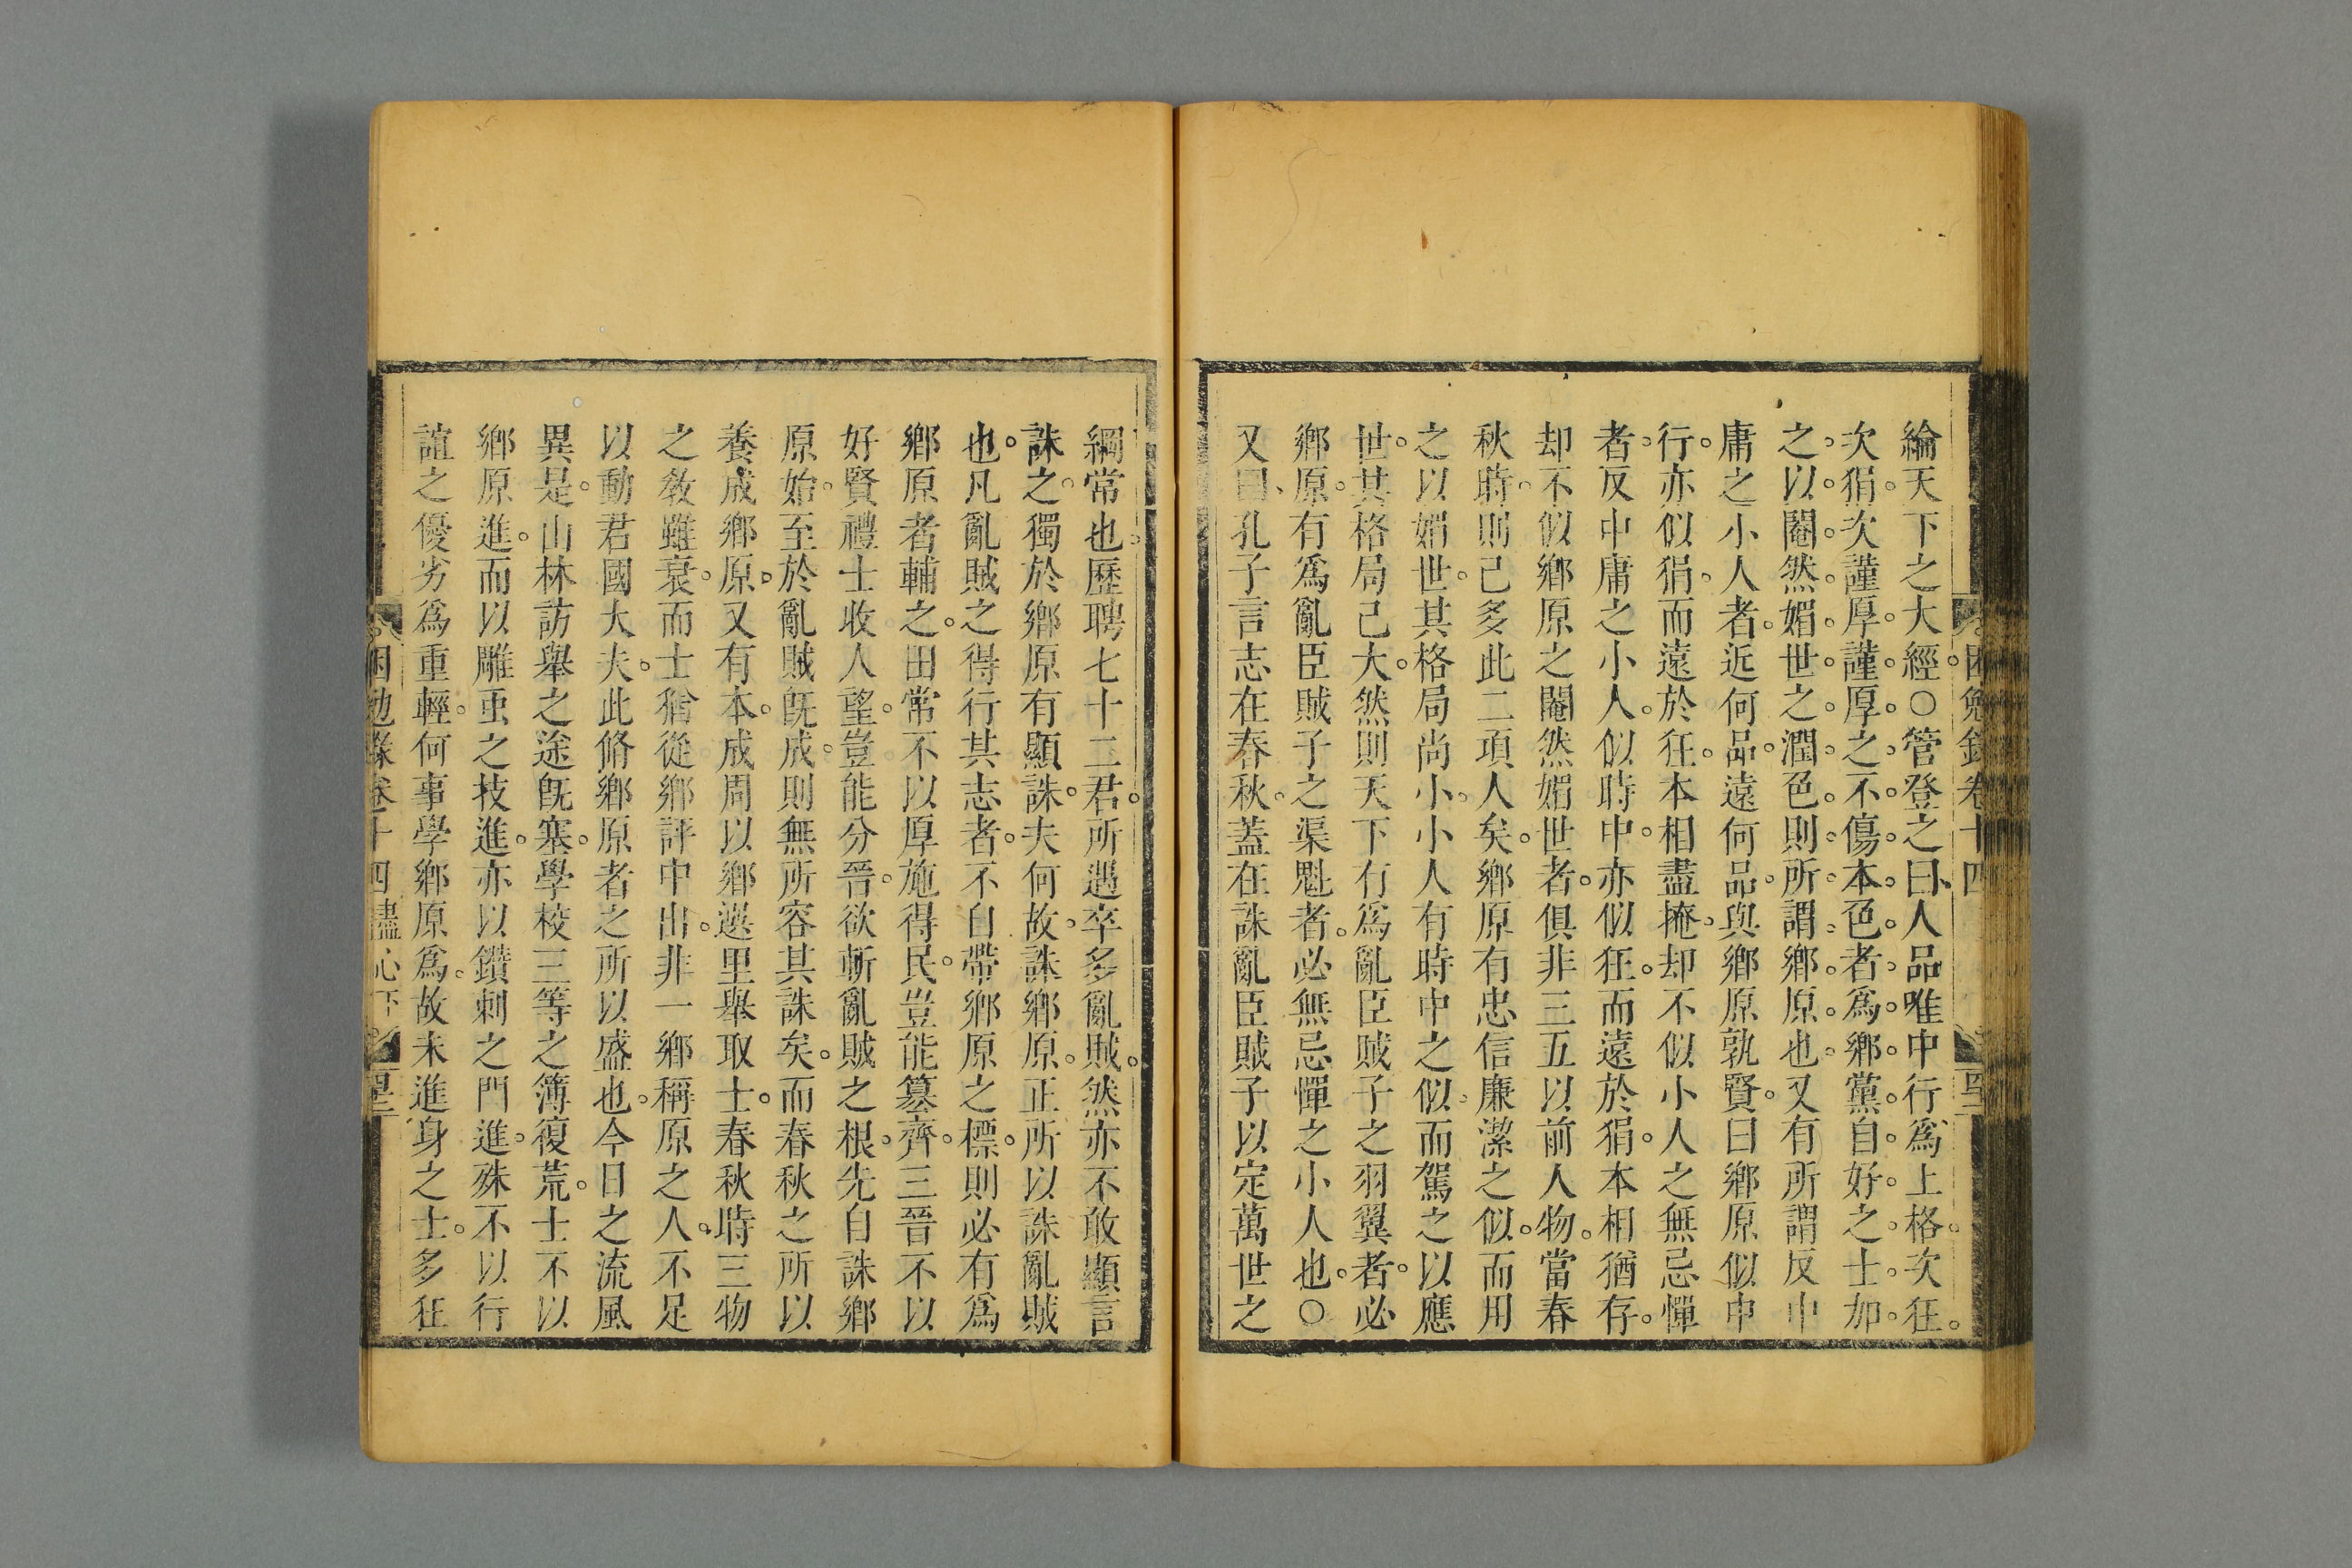 綸天下之大經。○管登之曰、人品唯中行爲上格。次狂。
次狷。次謹厚。謹厚之不傷本色者爲鄉黨自好之士。加
之以闍然媚世之潤色則所謂鄉原也。又有所謂反中
庸之小人者。近何品。遠何品。與鄉原孰賢。曰鄉原似中
行。亦似狷。而遠於狂。本相盡掩。却不似小人之無忌憚
者。反中庸之小人。似時中。亦似狂。而遠於狷。本相猶存。
却不似鄉原之闍然媚世者。俱非三五以前人物。當春
秋時。則已多此二項人矣。鄉原有忠信廉潔之似。而用
之以媚世。其格局尚小。小人有時中之似。而駕之以應
世。其格局已大。然則天下有爲亂臣賊子之羽翼者。必
鄉原。有爲亂臣賊子之渠魁者。必無忌憚之小人也。○
又曰、孔子言志在春秋。蓋在誅亂臣賊子以定萬世之
困勉錄卷十四
綱常也。歷聘七十二君。所遇卒多亂賊。然亦不敢顯言
誅之。獨於鄉原有顯誅。夫何故。誅鄉原。正所以誅亂賊
也。凡亂賊之得行其志者。不自帶鄉原之標。則必有爲
鄉原者輔之。田常不以厚施得民。豈能簒齊。三晉不以
好賢禮士收人望。豈能分晉。欲斬亂賊之根。先自誅鄉
原始。至於亂賊旣成。則無所容其誅矣。而春秋之所以
養成鄉原。又有本。成周以鄉選里舉取士。春秋時三物
之敎雖衰。而士猶從鄉評中出。非一鄉稱原之人。不足
以動君國大夫。此脩鄉原者之所以盛也。今日之流風
異是。山林訪舉之途旣塞。學校三等之簿復荒。士不以
鄉原進。而以雕虫之技進。亦以鑽刺之門進。殊不以行
誼之優劣爲重輕。何事學鄉原爲。故未進身之士。多狂
困勉彔卷十四 盡心下